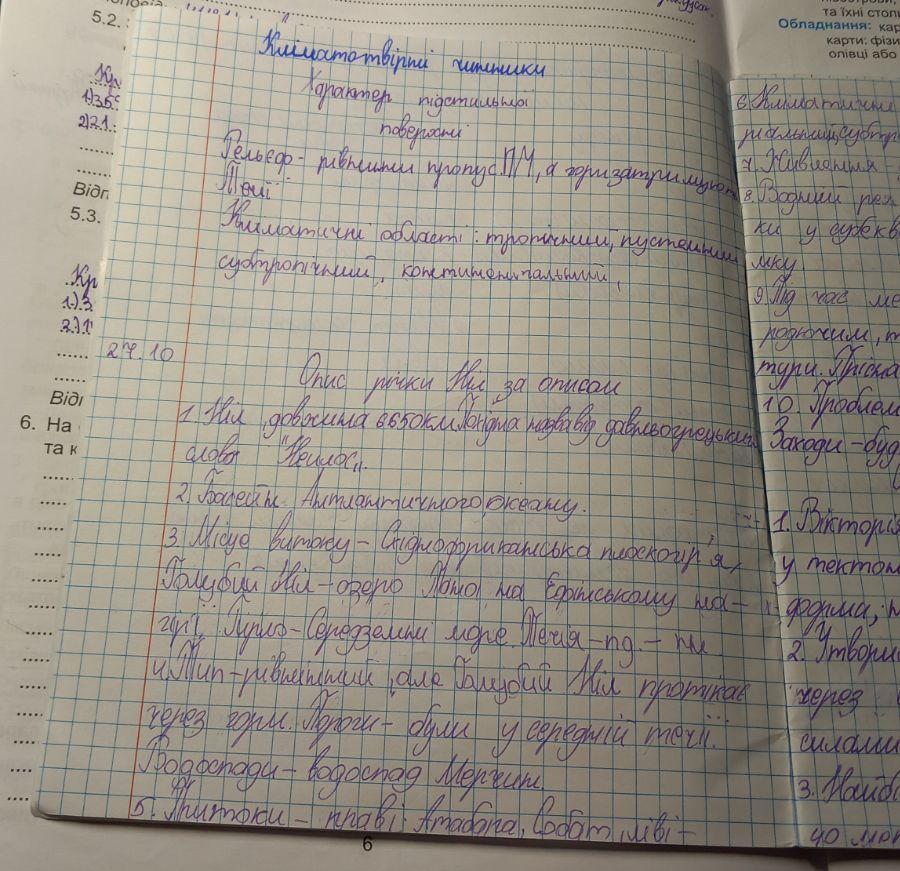 5.2.
Кліматотвірні чинники
Характер підстильної
поверхні
Рельєф - рівнини пропус. ПМ, а гори затримують
Течії
Кліматичні області: тропічний, пустельний
субтропічний, континентальний,
27.10
Опис річки Ніл за описом
1. Ніл, довжина 6650км. Походить назва від давньогрецького
слова "Нейлос".
2. Басейн Атлантичного океану.
3. Місце витоку - Східноафриканська плоскогір'я,
Голубий Ніл - озеро Тана на Ефіпському на-
гір'ї. Гирло - Середземне море. Течія - пд. - пн
4. Тип - рівнинний, але Голубий Ніл протікає
через гори. Пороги - були у середній течії.
Водоспади - водоспад Мерчисн.
5. Притоки - праві: Атабара, Собат, ліві -
6
Відп
5.3.
Кр
1).3
2).1
Відп
6. На
та к
та їхні столи
Обладнання: кар
карти: фізи
олівці або
6. Кліматичні
7. Живлення
8. Водний реж
мку
9. Під час ме
родючим, т
тури. Прісна
10. Проблем
Заходи - буд
1. Вікторія
у тектон
форма, п
2. Утвори
через
силами
3. Найбі